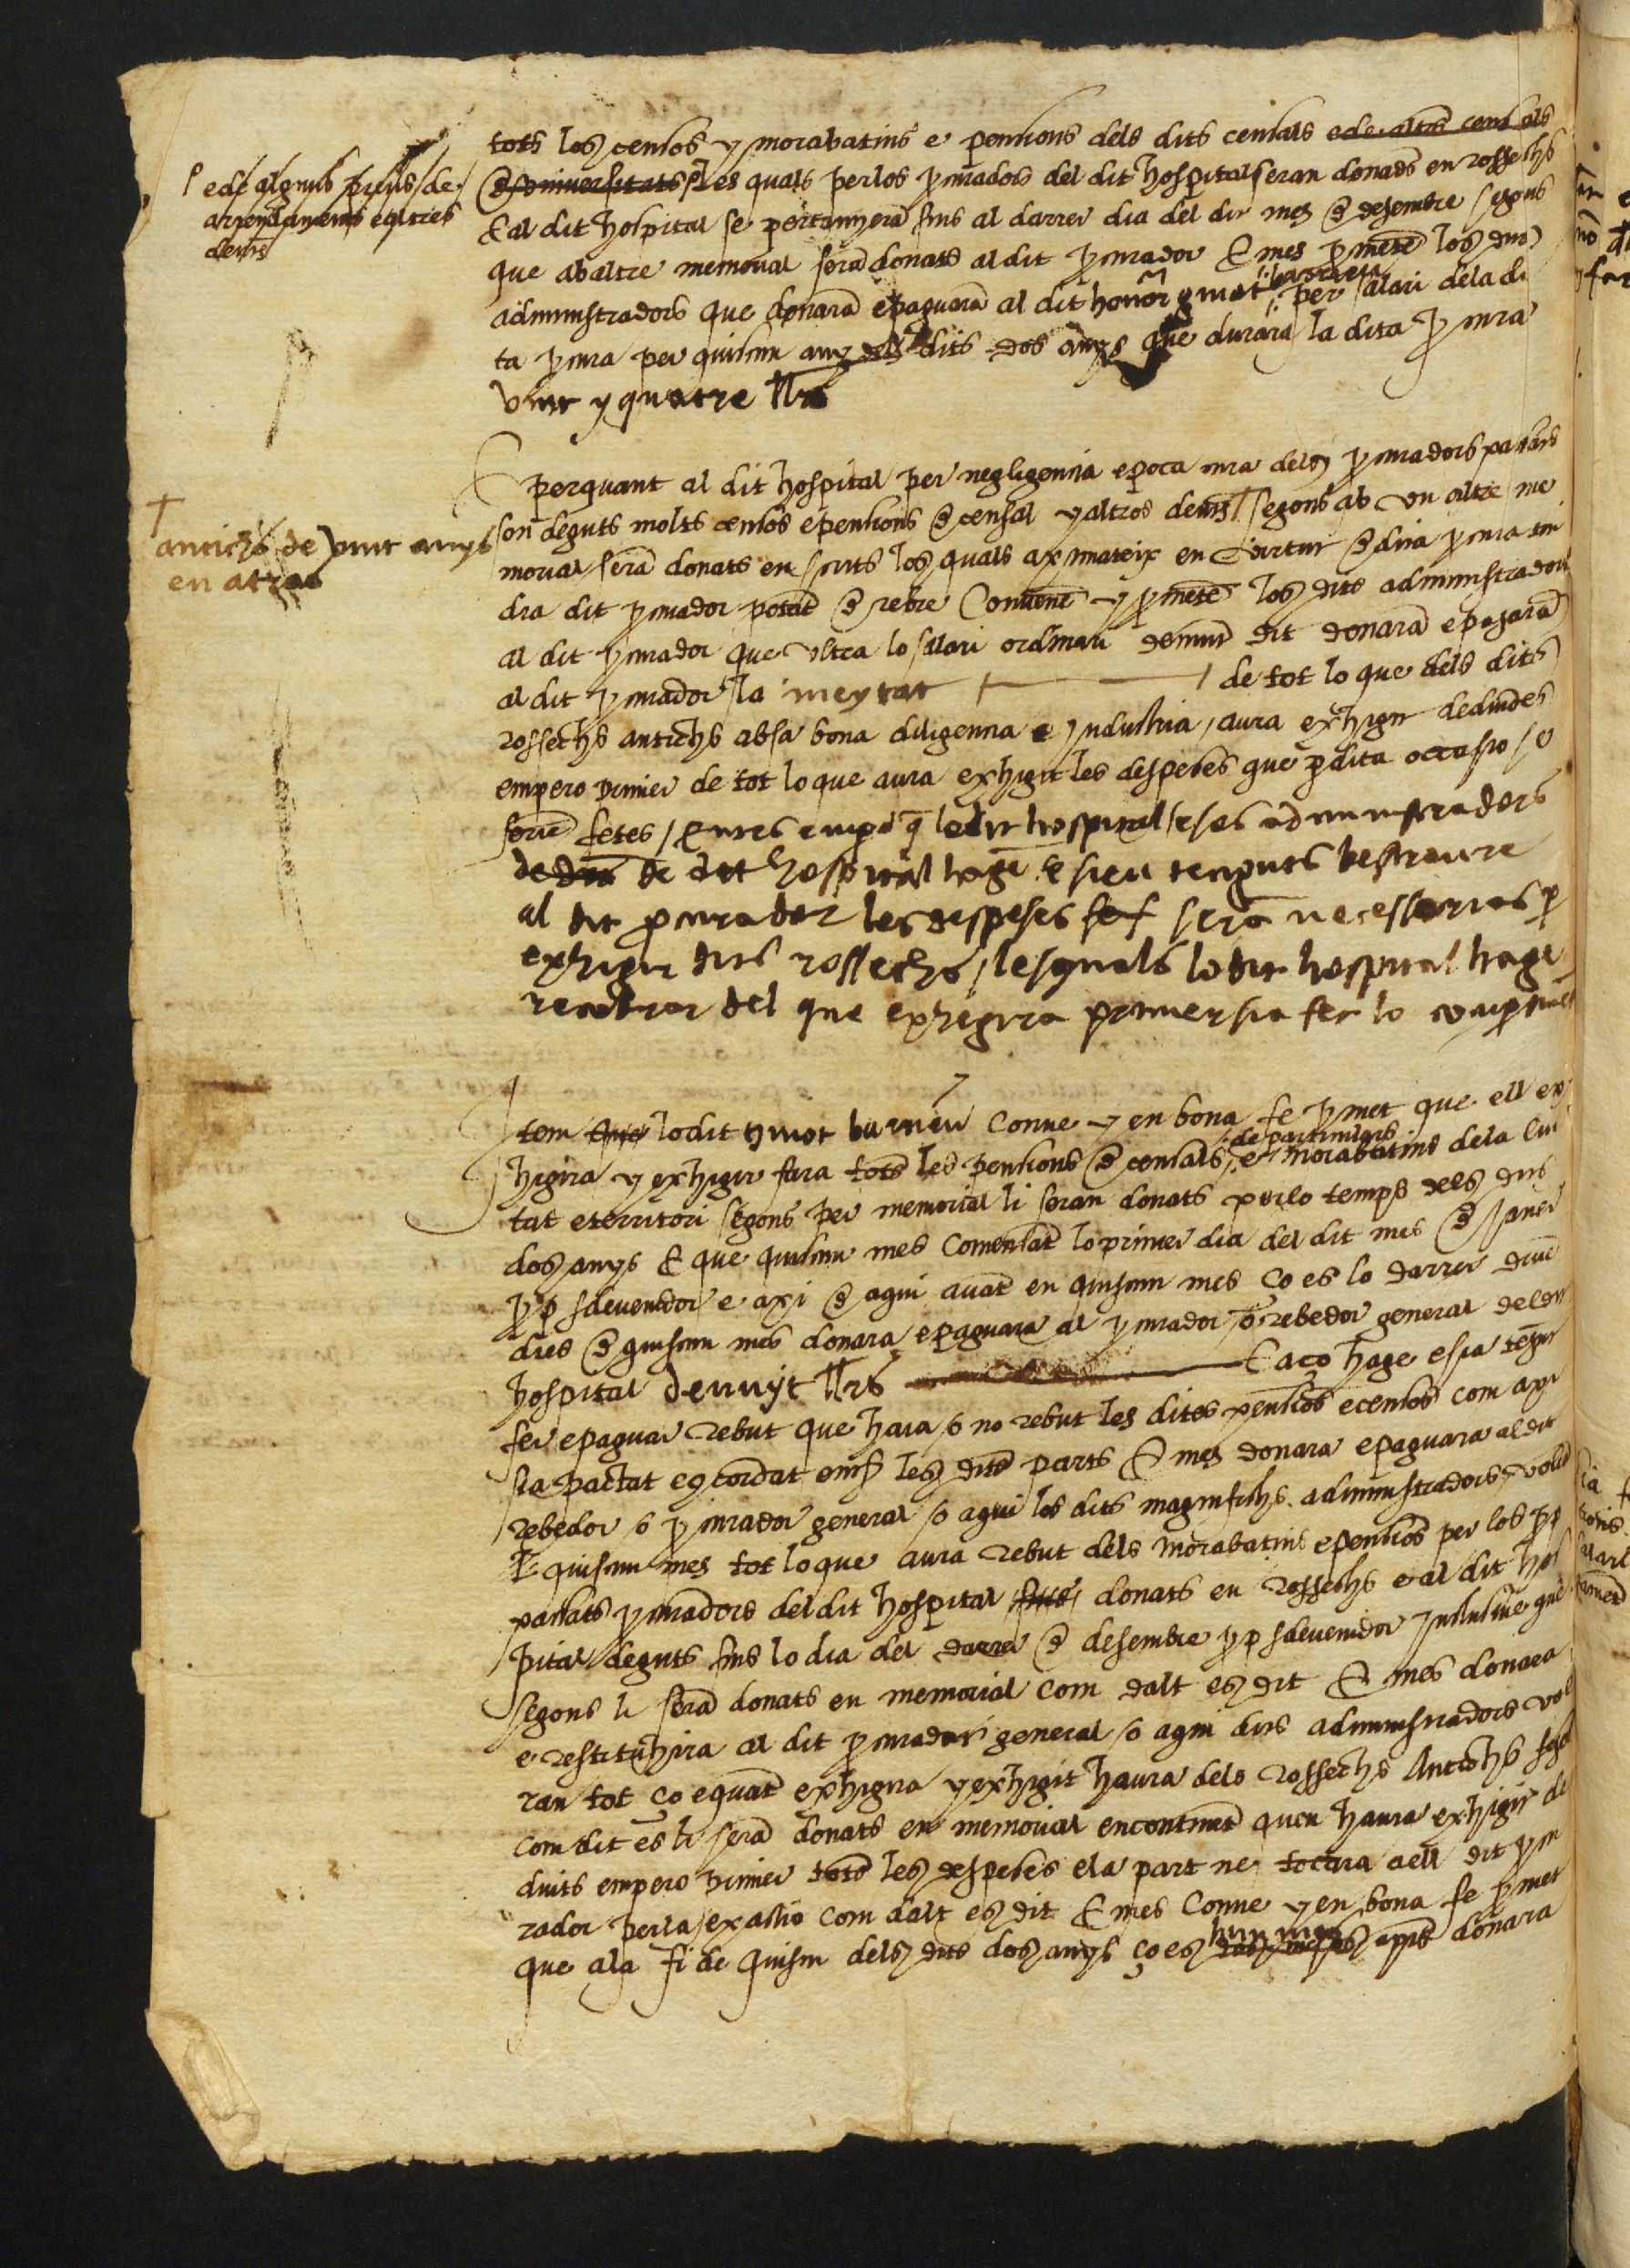 tots los censos y morabatins e pensions dels dits censals e de altres censals
de universitats les quals per los p̱curadors del dit hospital seran donades en rossechs
E al dit hospital se pertanyerā fins al darrer dia del dit mes de desembre segons
que ab altre memorial serā donats al dit p̱curador E mes p̱metē los dits
administradors que donarā e pagarā al dit honor gmot burneu per salari de la di
ta p̱cura per quiscun any dels dits dos anys que durara la dita p̱cura
vint y quatre llrs
e de alguns preus de
arrendaments e altres
deutes
E perquant al dit hospital per negligencia e poca cura dels p̱curadors passats
son deguts molts censos e pensions de censal y altres deutes segons ab un altre me
morial serā donats en scrits los quals aximateix en virtut de dita p̱cura tin
dra dit p̱curador potestat de rebre Convenē y p̱metē los dits administradors
al dit p̱curador que ultra lo salari ordinari demunt dit donarā e pagarā
al dit p̱curador la meytat de tot lo que dels dits
rossechs antichs ab sa bona diligencia e industria aura exhigit deduides
empero primer de tot lo que aura exhigit les despeses que p̱ dita occasio se
seriē fetes E entes emperò q̄ lo dit hospital e ses administradors
de dit de dit hospital hagē e sien tenguts bestraure
al dit p̱curador les despeses serā necessaries p̱
exhigir dits rossechs les quals lo dit hospital hage
recobrar del que exhegira primer sia fet lo
antichs de vint anys
en atras
Item que lo dit gmot burneu Conve y en bona fe p̱met que ell ex
higira y exhigir fara totes les pensions de censals de particulars e morabatins de la ciu
tat e territori segons per memorial li seran donats per lo temps dels dits
dos anys E que quiscun mes comensant lo primer dia del dit mes de Janer
p̱p sdevenidor e axi de aqui avāt en quiscun mes ço es lo darrer
dies de quiscun mes donara e pagara al p̱curador o rebedor general del dit
hospital denuyt llrs E aço hage e sia tengut
fer e pagar rebut que haia o no rebut les dites pensions e censos com axi
sia pactat e concordat entre les dites parts E mes donara e pagara al dit
rebedor o p̱curador general o a qui los dits magnifichs administradors volrā
E quiscun mes tot lo que aura rebut dels morabatins e pensions per los p̱p
passats p̱curadors del dit hospital donats en rossechs e al dit hos
pital deguts fins lo dia del darrer de desembre p̱p sdevenidor inclusive que
segons li serā donats en memorial com dalt es dit E mes donara
e restituhira al dit p̱curador general o a qui dits administradors vol
ran tot ço e quāt exhigira y exhigit haura dels rossechs antichs segōs
com dit es li serā donats en memorial encontinēt quen haura exhigit de
duits empero primer totes les despeses e la part ne tocara a ell dit p̱cu
rador per la exactio com dalt es dit E mes Conve y en bona fe p̱met
que a la fi de quiscun dels dits dos anys ço es hun mes apres donara